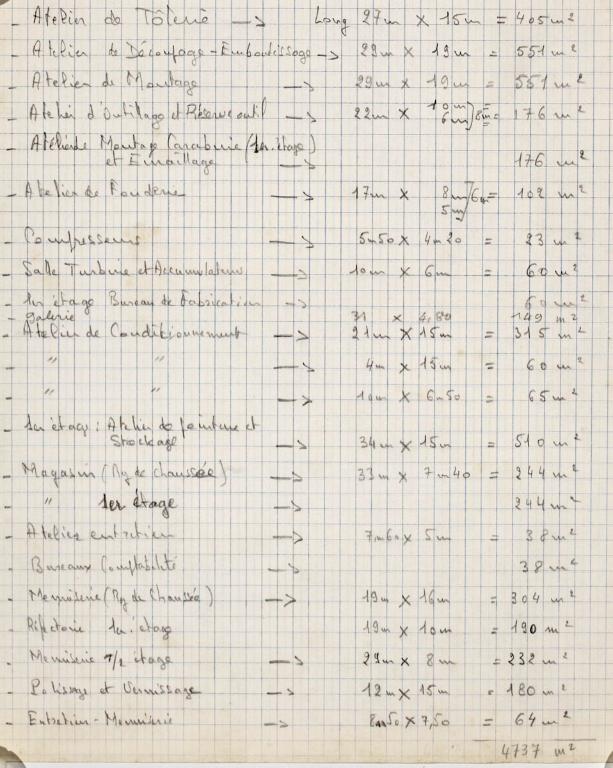 - Atelier de Tôlerie → Long 27m × 15m = 405 m²
- Atelier de Découpage - Emboutissage → 29m × 19m = 551 m²
- Atelier de Montage → 29m × 19m = 551 m²
- Atelier d'Outillage et Réserve outil → 22m × 10m 6m } 8m = 176 m²
- Atelier de Montage Carabine (1er. étage)
et Emaillage → 176 m²
- Atelier de Fonderie → 17m × 8m 5m } 6m = 102 m²
- Compresseurs → 5m50 × 4m20 = 23 m²
- Salle Turbine et Accumulateurs → 10m × 6m = 60 m²
- 1er étage Bureau de Fabrication → 60 m²
- galerie 31 × 4,80 149 m²
- Atelier de Conditionnement → 21m × 15m = 315 m²
- " " → 4m × 15m = 60 m²
- " " → 10m × 6m50 = 65 m²
- 1er étage : Atelier de peinture et
Stockage → 34m × 15m = 510 m²
- Magasin (Rg de chaussée) → 33m × 7m40 = 244 m²
- " 1er étage → 244 m²
- Atelier entretien → 7m60 × 5m = 38 m²
- Bureaux Comptabilité → 38 m²
- Menuiserie (Rg de Chaussée) → 19m × 16m = 304 m²
- Réfectoire 1er. étage 19m × 10m = 190 m²
- Menuiserie 1/2 étage → 29m × 8m = 232 m²
- Polissage et Vernissage → 12m × 15m = 180 m²
- Entretien - Menuiserie → 8m50 × 7,50 = 64 m²
4737 m²